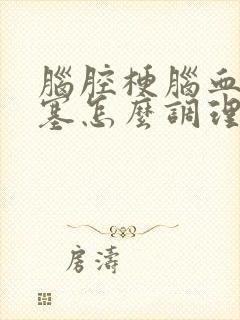 腦腔梗腦血
塞怎麼調理
房濤